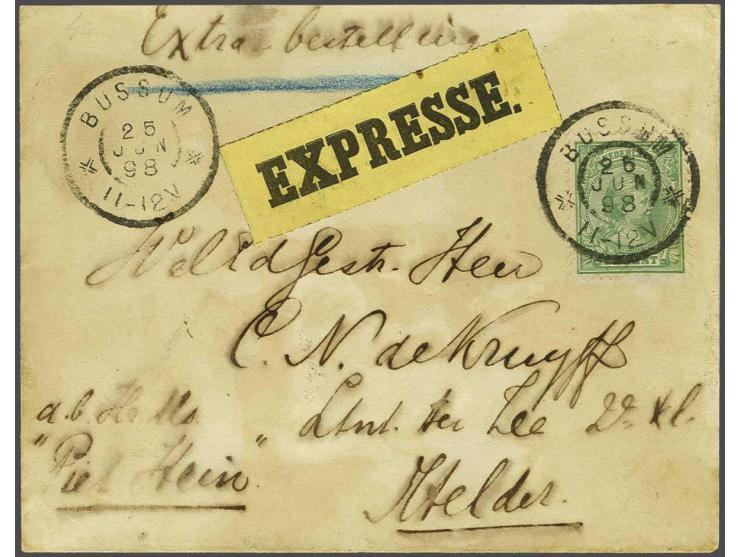 Extra bestelling
BUSSUM
25
JUN
98
11-12V
EXPRESSE.
BUSSUM
25
JUN
98
11-12V
CENT
WelEdGestr. Heer
C. N. de Kruyff
a.b. Hr. Ms. Ltnt. ter Zee 2e kl.
"Piet Hein"
Helder.